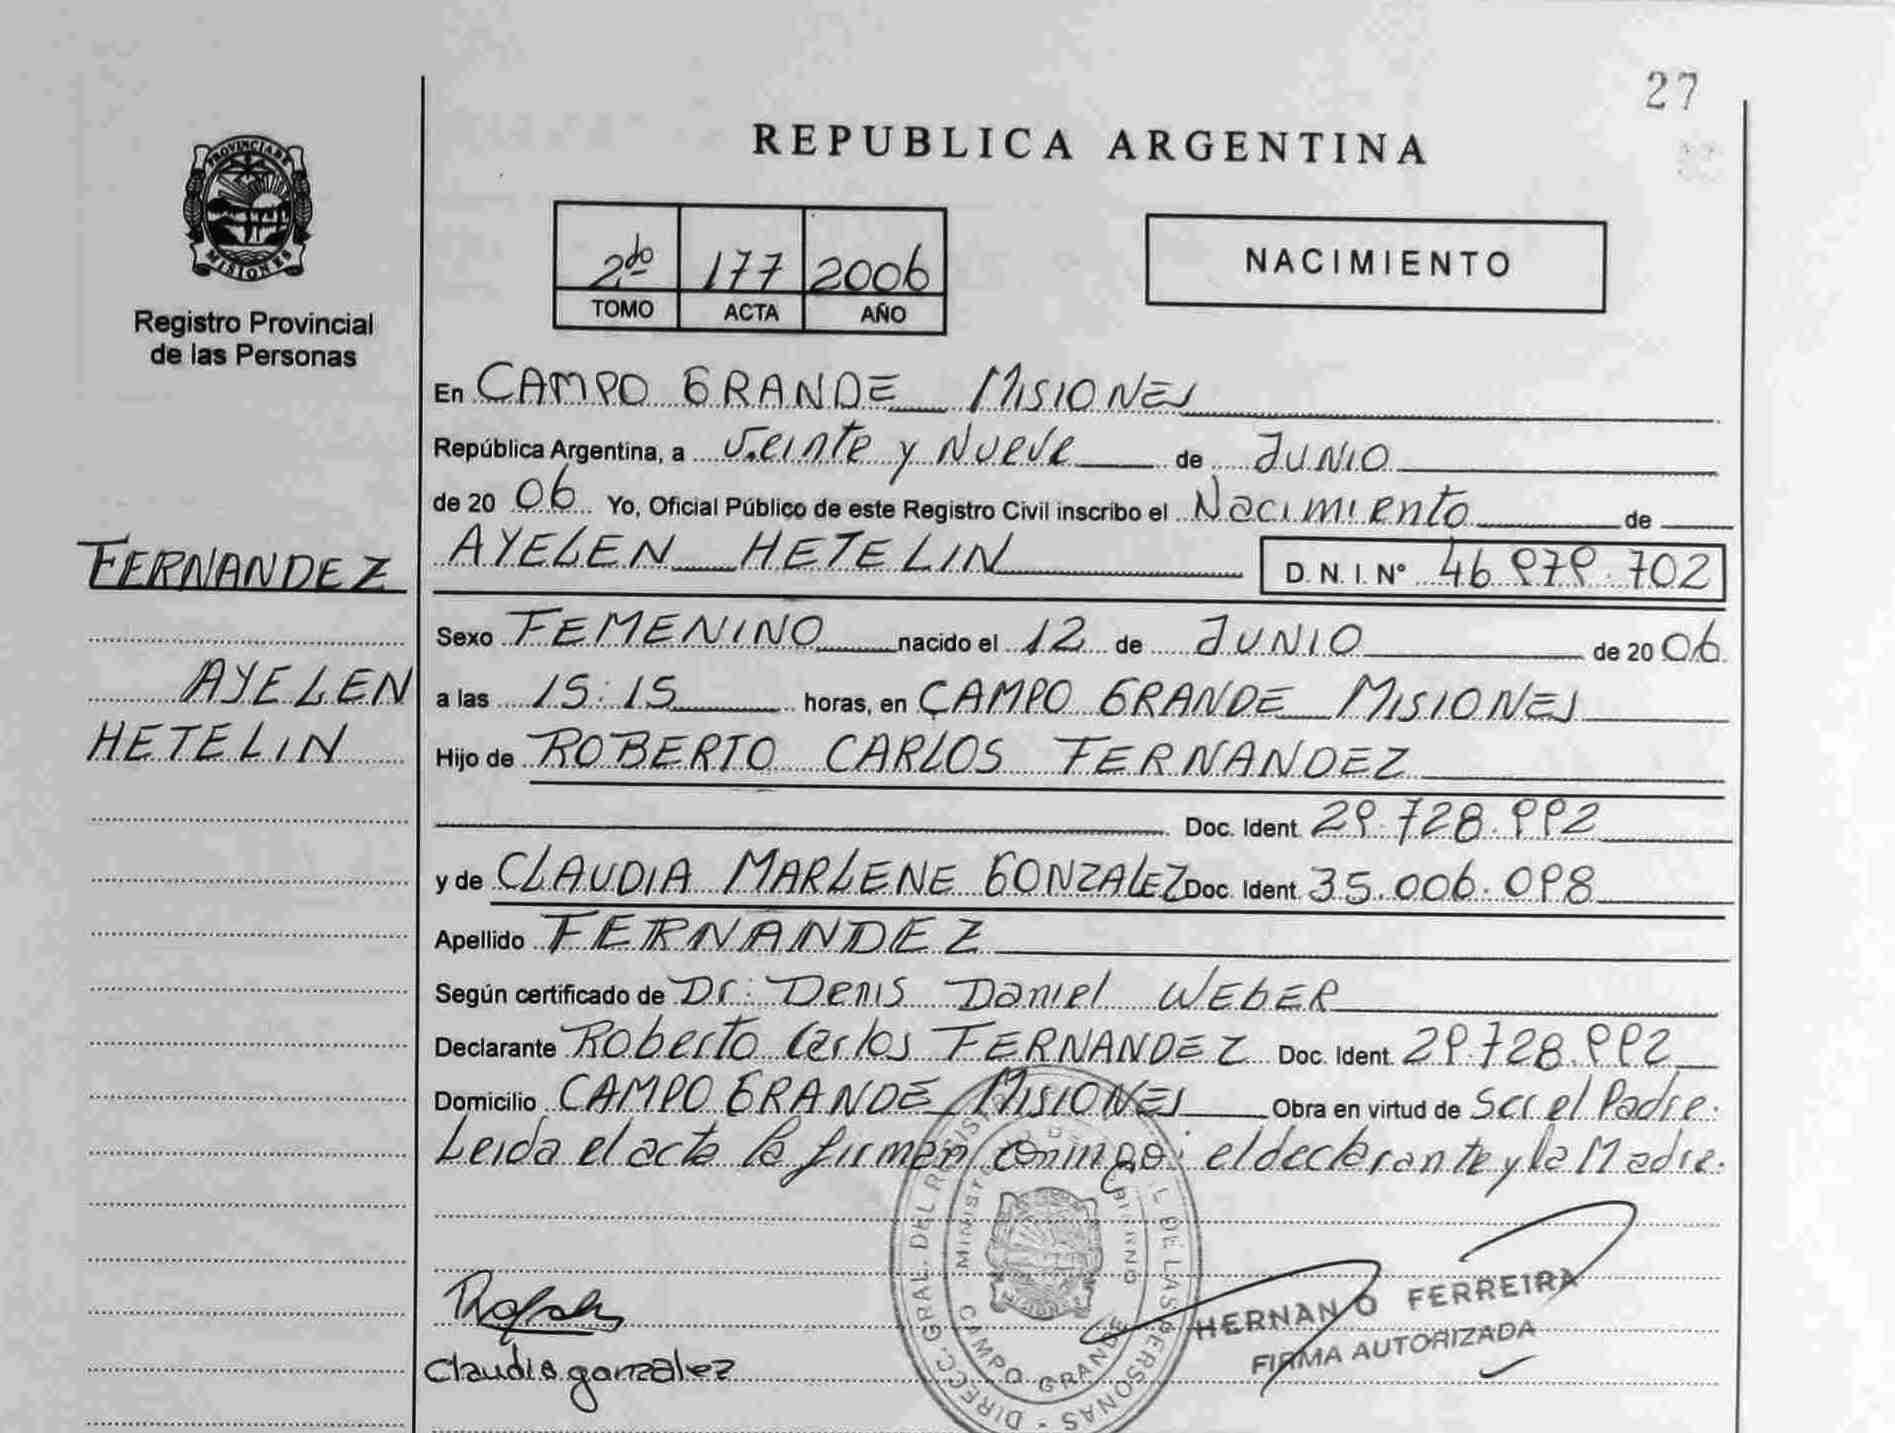 27
REPUBLICA ARGENTINA
PROVINCIA DE
MISIONES
Registro Provincial
de las Personas
2do 177 2006
TOMO ACTA AÑO
NACIMIENTO
En CAMPO GRANDE MISIONES
República Argentina, a Veinte y Nueve de JUNIO
de 20 06 Yo, Oficial Público de este Registro Civil inscribo el Nacimiento de
FERNANDEZ
AYELEN HETELIN D. N. I. Nº 46.979.702
Sexo FEMENINO nacido el 12 de JUNIO de 20 06
AYELEN
a las 15:15 horas, en CAMPO GRANDE MISIONES
HETELIN
Hijo de ROBERTO CARLOS FERNANDEZ
Doc. Ident. 29.728.992
y de CLAUDIA MARLENE GONZALEZ Doc. Ident. 35.006.098
Apellido FERNANDEZ
Según certificado de Dr: Denis Daniel WEBER
Declarante Roberto Carlos FERNANDEZ Doc. Ident. 29.728.992
Domicilio CAMPO GRANDE MISIONES Obra en virtud de Ser el Padre.
Leida el acta la firman conmigo: el declarante y la Madre.
DIRECC. GRAL. DEL REGIST L DE LAS PERSONAS
CAMPO GRANDE
HERNAN O FERREIRA
FIRMA AUTORIZADA
Claudia gonzalez